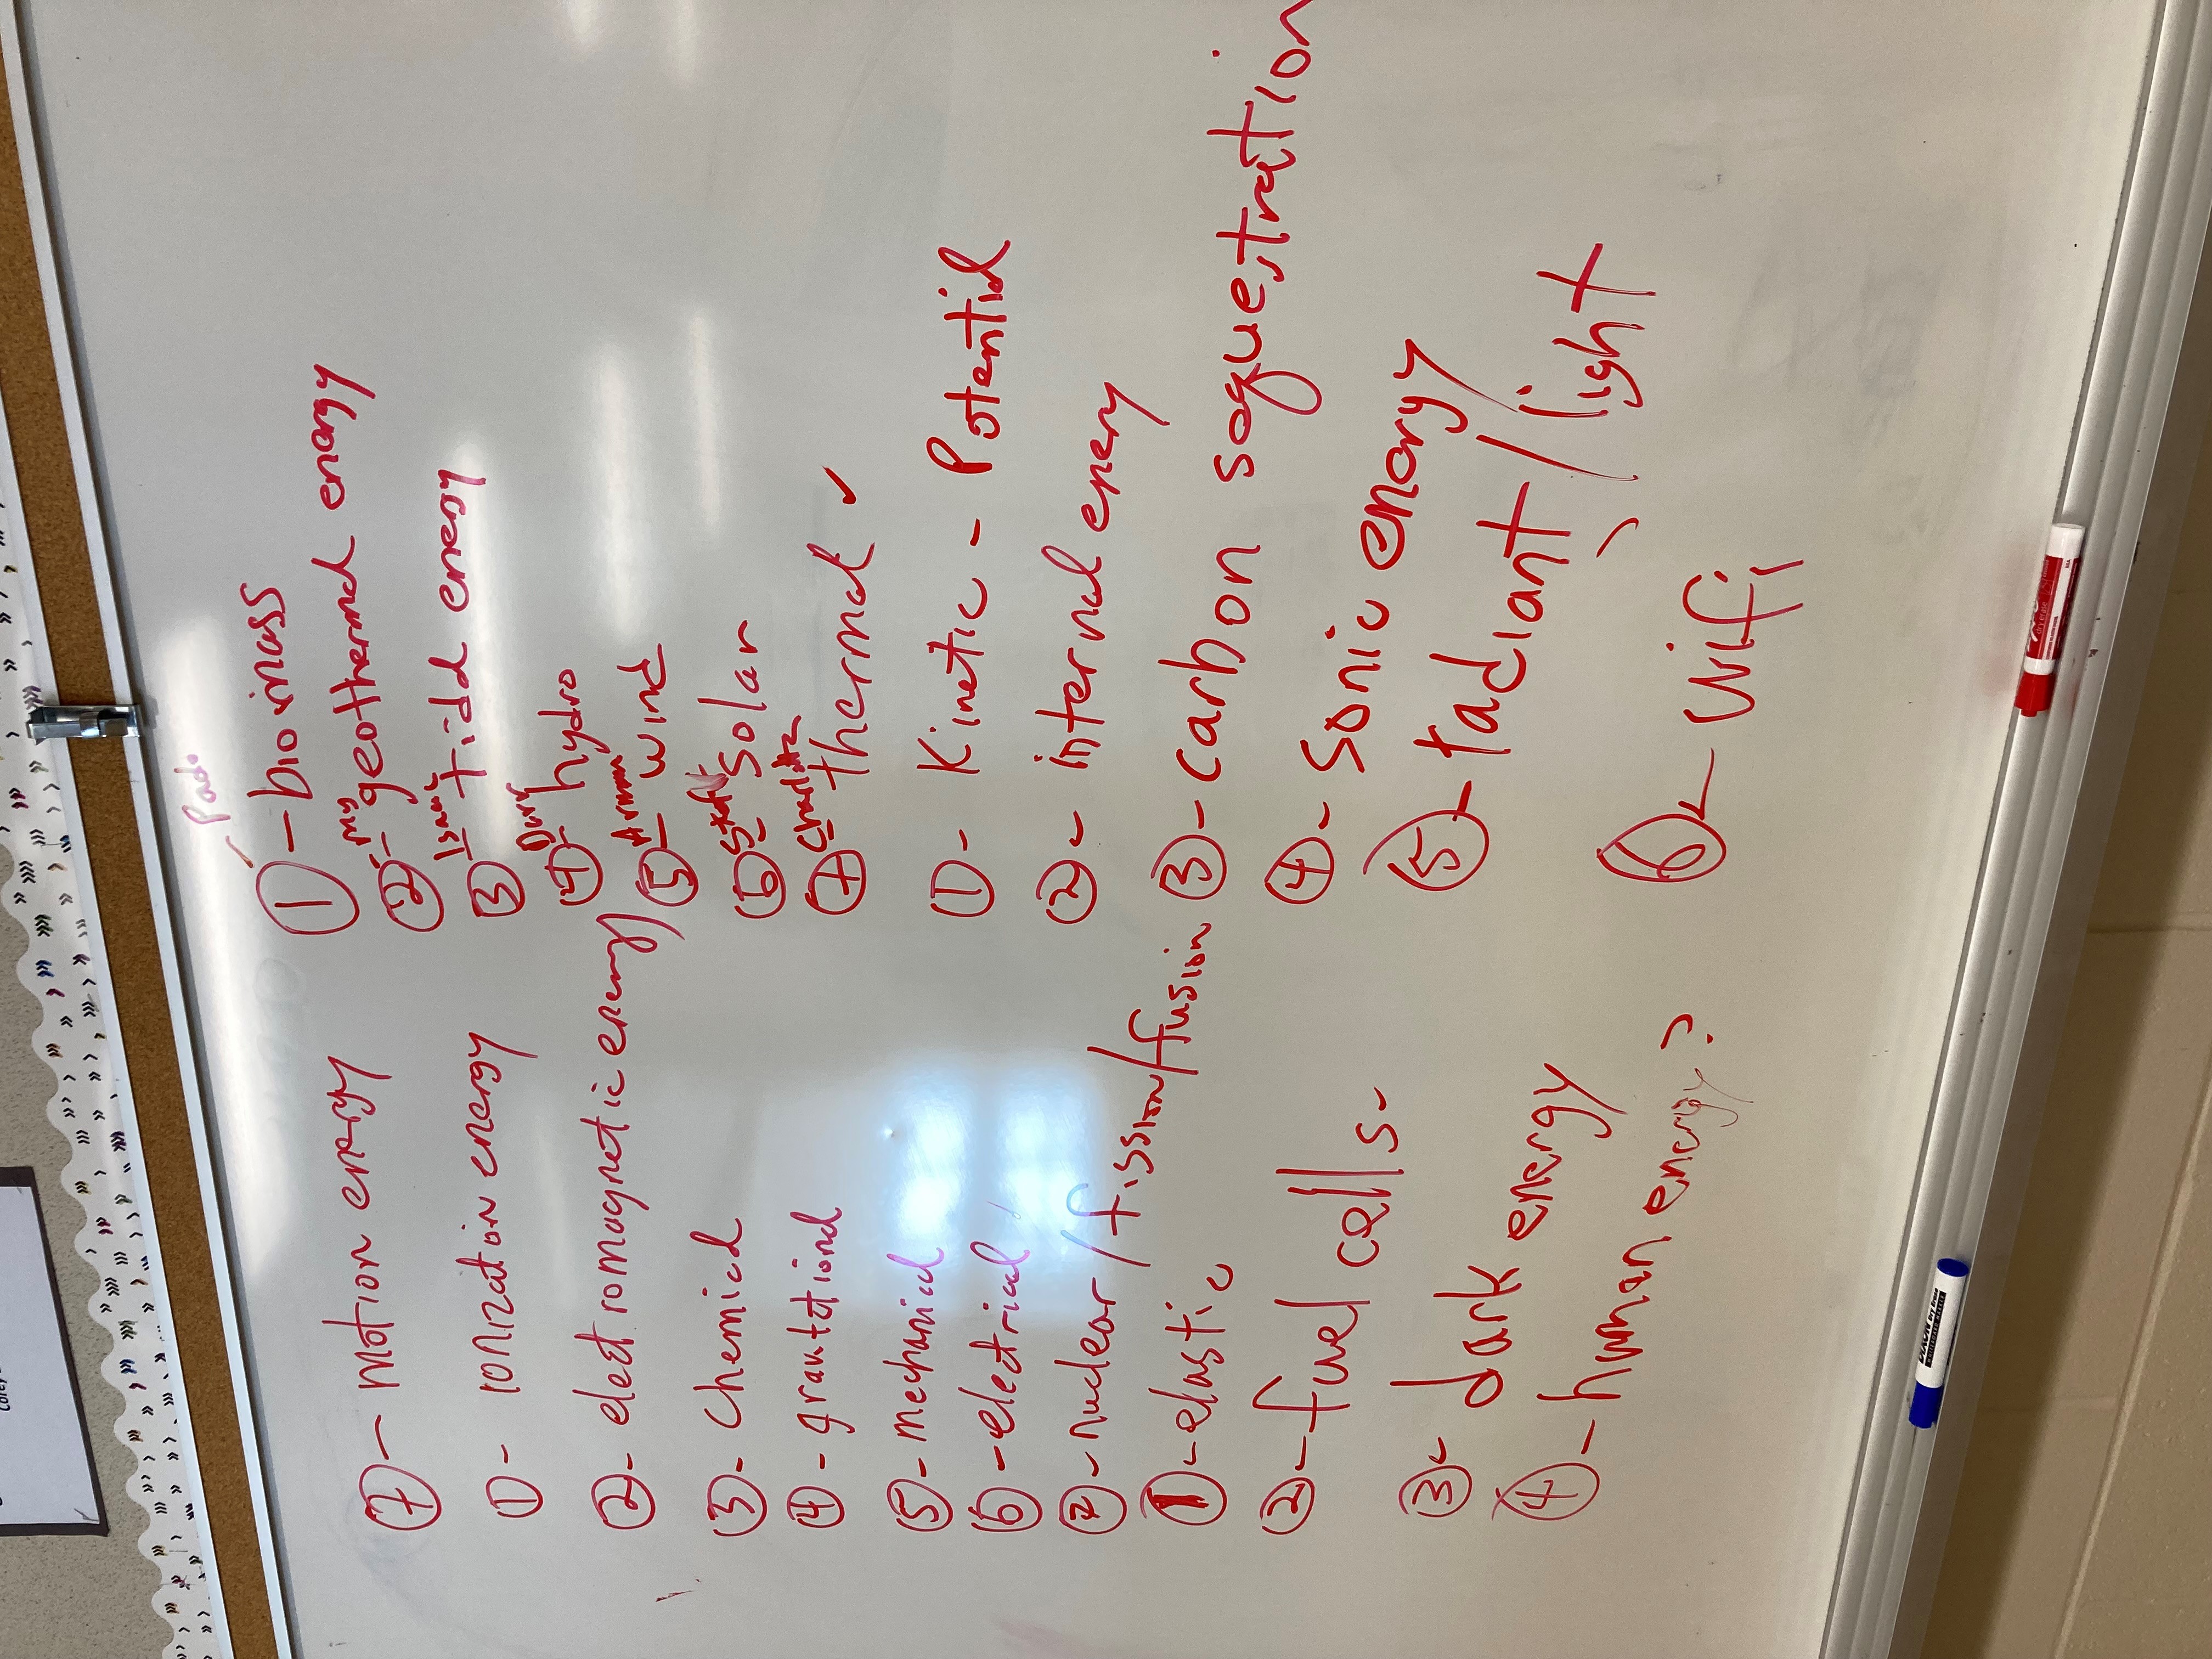 Corey
⑦ - motion energy
① - ionization energy
② - electromagnetic energy
③ - Chemical
④ - gravitational
⑤ - mechanical
⑥ - electrical
⑦ - nuclear / fission / fusion
① - elastic
② - fuel cells -
③ - dark energy
④ - human energy?
① - biomass
My
② - geothermal energy
Isaac
③ - tidal energy
Darr
④ - hydro
Arman
⑤ - wind
⑥ - solar
Charlotte
⑦ - thermal ✓
① - Kinetic - Potential
② - internal enery
③ - carbon sequestration
④ - Sonic energy
⑤ - radiant / light
⑥ - wifi
DIXON Dry Erase
WHITEBOARD MARKER
dry erase